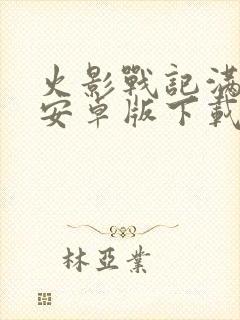 火影戰記滿
安卓版下載
林亞業